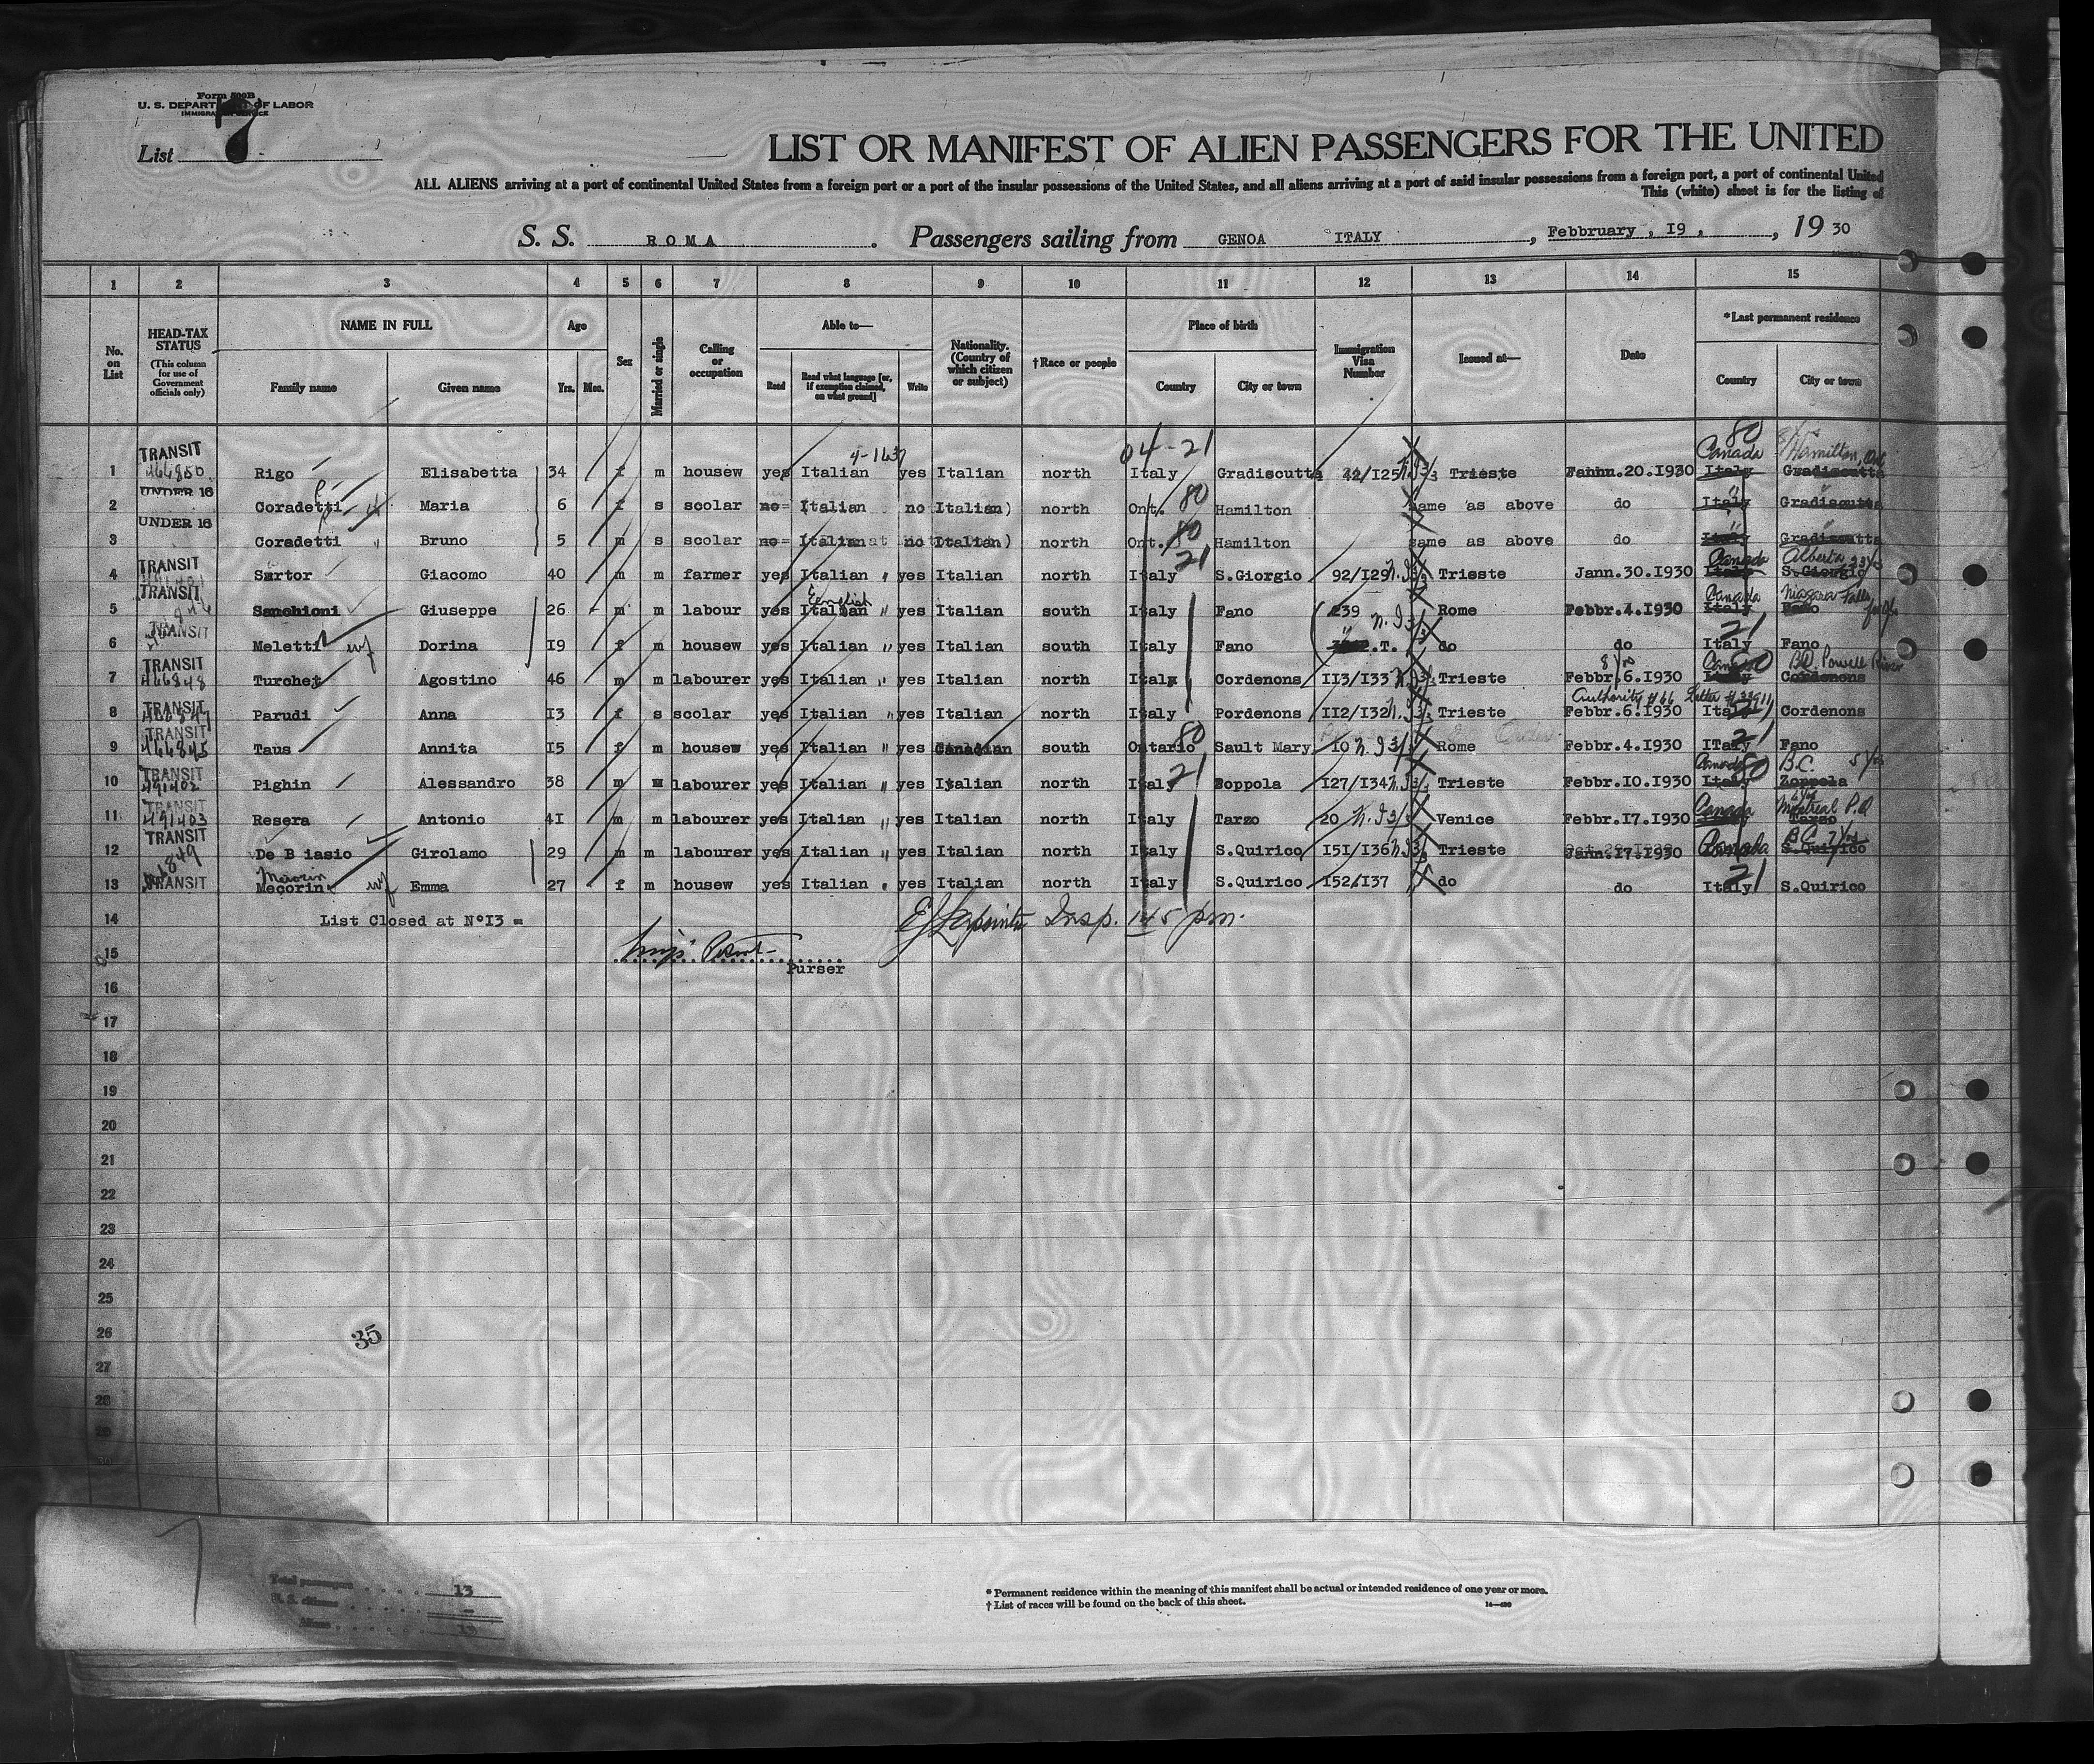 Form 500B
U. S. DEPARTMENT OF LABOR
IMMIGRATION SERVICE
List 7
LIST OR MANIFEST OF ALIEN PASSENGERS FOR THE UNITED
ALL ALIENS arriving at a port of continental United States from a foreign port or a port of the insular possessions of the United States, and all aliens arriving at a port of said insular possessions from a foreign port, a port of continental United
This (white) sheet is for the listing of
S. S. ROMA . Passengers sailing from GENOA ITALY , Febbruary , I9 , , 19 30
1 2 3 4 5 6 7 8 9 10 11 12 13 14 15
No. on List
HEAD-TAX STATUS (This column for use of Government officials only)
NAME IN FULL Family name Given name
Age Yrs. Mos.
Sex
Married or single
Calling or occupation
Able to— Read Read what language [or, if exemption claimed, on what ground] Write
Nationality. (Country of which citizen or subject)
†Race or people
Place of birth Country City or town
Immigration Visa Number
Issued at—
Date
*Last permanent residence Country City or town
04-21 80
4-1437 Canada Hamilton, Ont
1 TRANSIT 466850 Rigo Elisabetta 34 f m housew yes Italian yes Italian north Italy Gradiscutta 42/I25 Trieste Fahhn.20.I930 Italy Gradiscutta
2 UNDER 16 Coradetti Maria 6 f s scolar no Italian no Italian) north Ont. 80 Hamilton same as above do Italy Gradiscutta
3 UNDER 16 Coradetti " Bruno 5 m s scolar no Italian no Italian) north Ont. 80 Hamilton same as above do Italy Gradiscutta
21 Canada Alberta
4 TRANSIT Sartor Giacomo 40 m m farmer yes Italian " yes Italian north Italy S.Giorgio 92/I29 Trieste Jann.30.I930 Italy S.Giorgio
English Canada Niagara Falls
5 TRANSIT Sanchioni Giuseppe 26 m m labour yes Italian " yes Italian south Italy Fano 239 Rome Febbr.4.I930 Italy Fano
6 TRANSIT Meletti wf Dorina I9 f m housew yes Italian " yes Italian south Italy Fano do do Italy 21 Fano
8 yrs Canada 80 BC. Powell River
7 TRANSIT 466848 Turchet Agostino 46 m m labourer yes Italian " yes Italian north Italy Cordenons II3/I33 Trieste Febbr.6.I930 Italy Cordenons
Authority #66 Letter
8 TRANSIT 466847 Parudi Anna I3 f s scolar yes Italian " yes Italian north Italy Pordenons II2/I32 Trieste Febbr.6.I930 Italy Cordenons
9 TRANSIT 466845 Taus Annita I5 f m housew yes Italian " yes Canadian south Ontario 80 Sault Mary IO Rome Febbr.4.I930 ITaly 21 Fano
Canada 80 B.C. 5 yrs
10 TRANSIT 491402 Pighin Alessandro 38 m m labourer yes Italian " yes Italian north Italy 21 Zoppola I27/I34 Trieste Febbr.IO.I930 Italy Zoppola
Canada Montreal P.Q
11 TRANSIT 491403 Resera Antonio 4I m m labourer yes Italian " yes Italian north Italy Tarzo 20 Venice Febbr.I7.I930 Tarzo
Canada B.C. 7 yrs
12 TRANSIT De B iasio Girolamo 29 m m labourer yes Italian " yes Italian north Italy S.Quirico I5I/I36 Trieste Jann.I7.I930 S.Quirico
13 TRANSIT Megorin wf Emma 27 f m housew yes Italian " yes Italian north Italy S.Quirico I52/I37 do do Italy 21 S.Quirico
14 List Closed at N°I3 = Insp. 145 pm.
15
Purser
16
17
18
19
20
21
22
23
24
25
26
35
27
28
29
30
7
Total passengers . . . . . 13
U. S. citizens . . . . . –
Aliens . . . . . . 13
* Permanent residence within the meaning of this manifest shall be actual or intended residence of one year or more.
† List of races will be found on the back of this sheet.